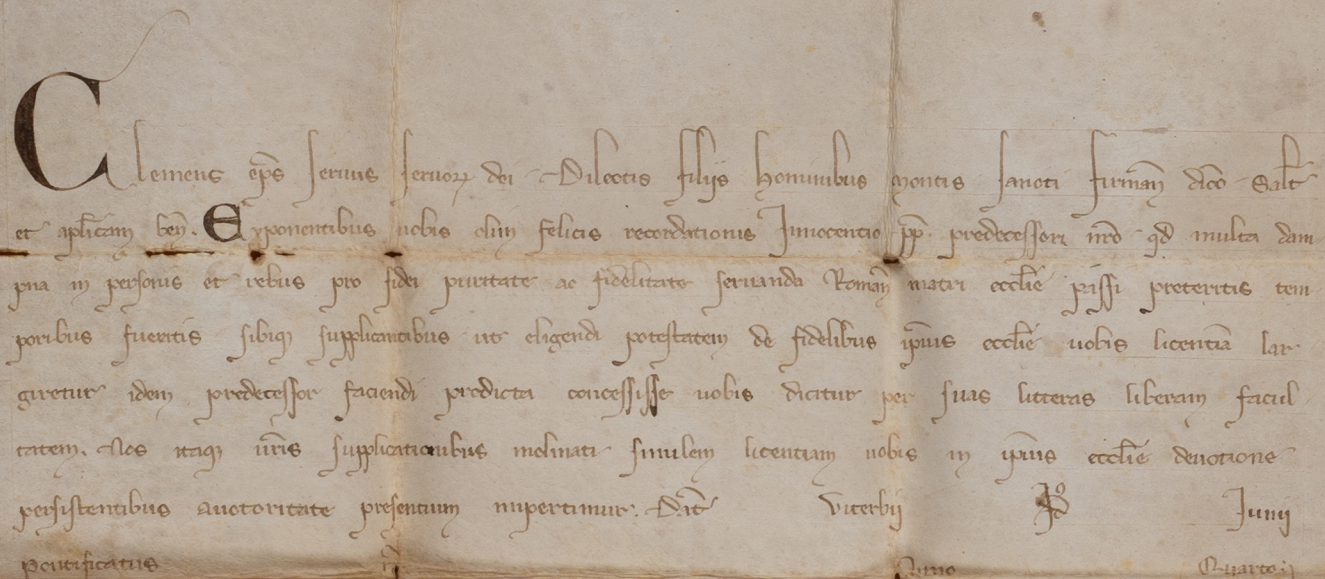 Clemens ep̄s seruus seruoꝝ dei Dilectis filijs Hominibus Montis sancti Firmān dioc̄ Salt̄
et ap̄licam ben̄. Exponentibus uobis olim felicis recordationis Innocentio pp̄. predecessori nr̄o qd̄ multa dam
pna in personis et rebus pro fidei puritate ac fidelitate seruanda Romāñ matri ecclīe passi preteritis tem
poribus fueritis sibiqꝫ supplicantibus ut eligendi potestatem de fidelibus ip̄ius ecclīe uobis licentiā lar
giretur idem predecessor faciendi predicta concessisse uobis dicitur per suas litteras liberam facul
tatem. Nos itaqꝫ ur̄is supplicationibus inclinati similem licentiam uobis in ip̄ius ecclīe deuotione
persistentibus auctoritate presentium impertimur. Dat̄ Viterbij Junij
Pontificatus nr̄i Anno Quarto